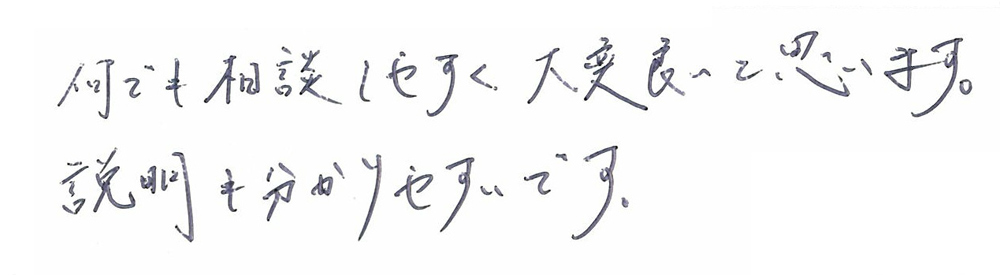 何でも相談しやすく、大変良いと思います。
説明も分かりやすいです。